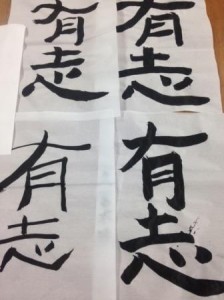 有志
有志
有志
有志